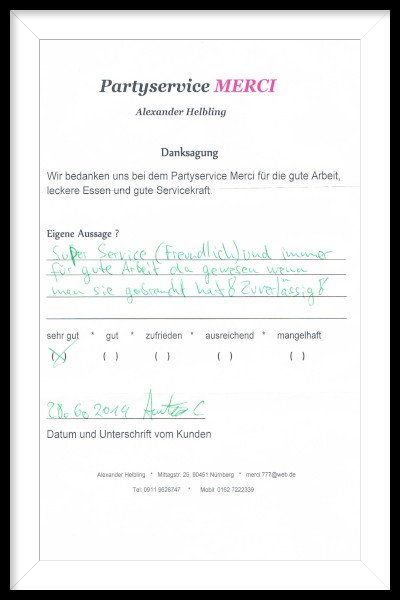 Partyservice MERCI
Alexander Helbling
Danksagung
Wir bedanken uns bei dem Partyservice Merci für die gute Arbeit,
leckere Essen und gute Servicekraft.
Eigene Aussage ?
Super Service (Freundlich) und immer
für gute Arbeit da gewesen wenn
man sie gebraucht hat & Zuverlässig &
sehr gut * gut * zufrieden * ausreichend * mangelhaft
(X) ( ) ( ) ( ) ( )
2014
Datum und Unterschrift vom Kunden
Alexander Helbling * Mittagstr. 25, 90451 Nürnberg * merci.777@web.de
Tel: 0911 9628747 * Mobil: 0162 7222339